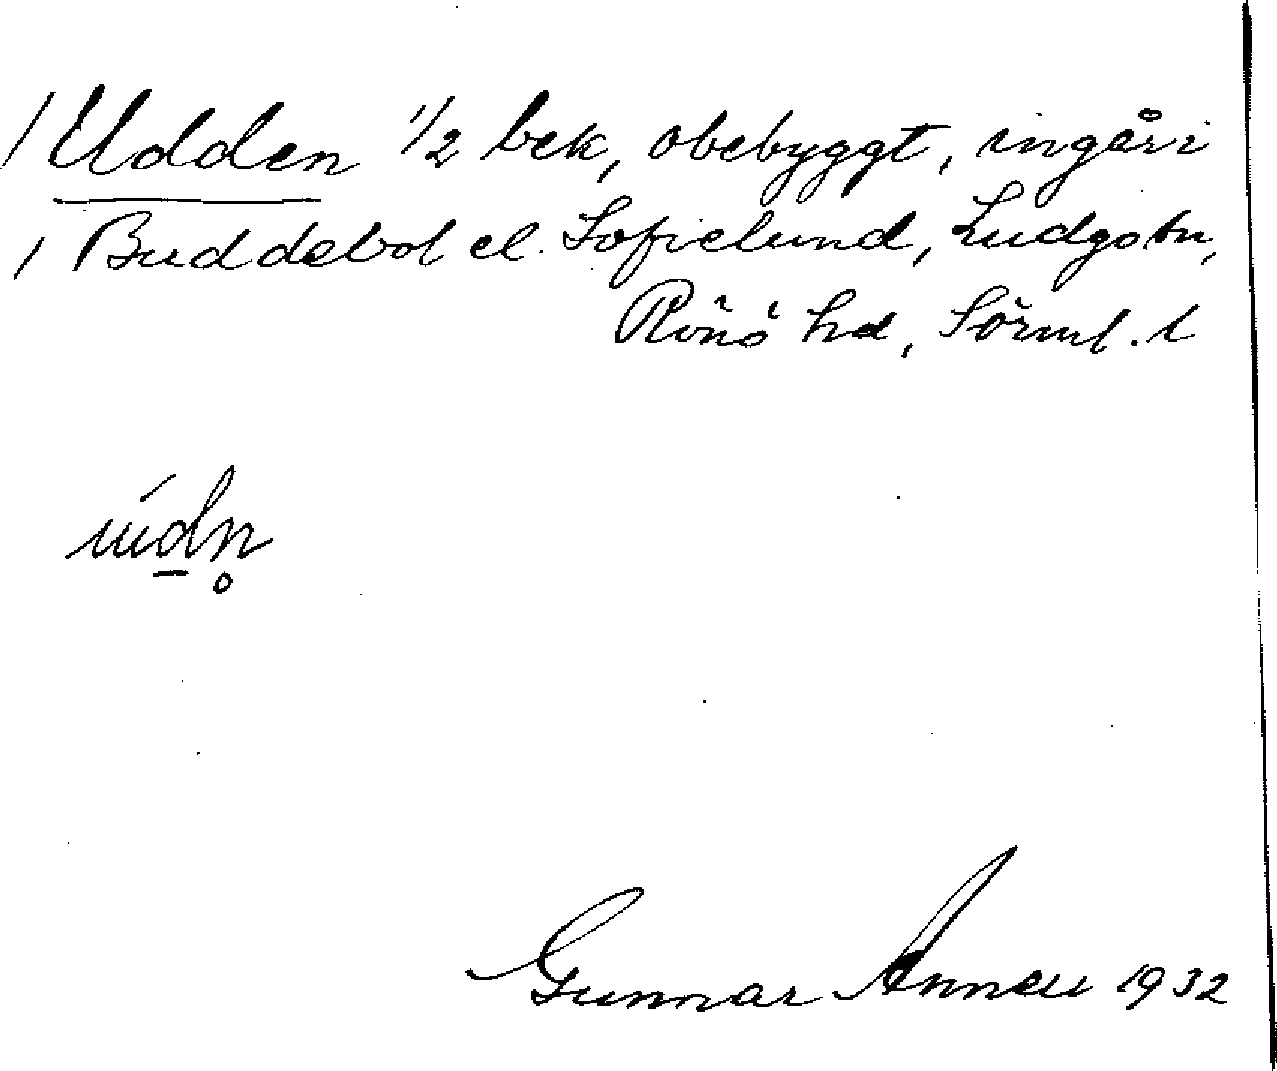 / Udden 1/2 bek, obebyggt, ingår i
/ Buddebol el. Sofielund, Ludgo sn,
Rönö hd, Sörml. l
údn̥
Gunnar Annell 1932